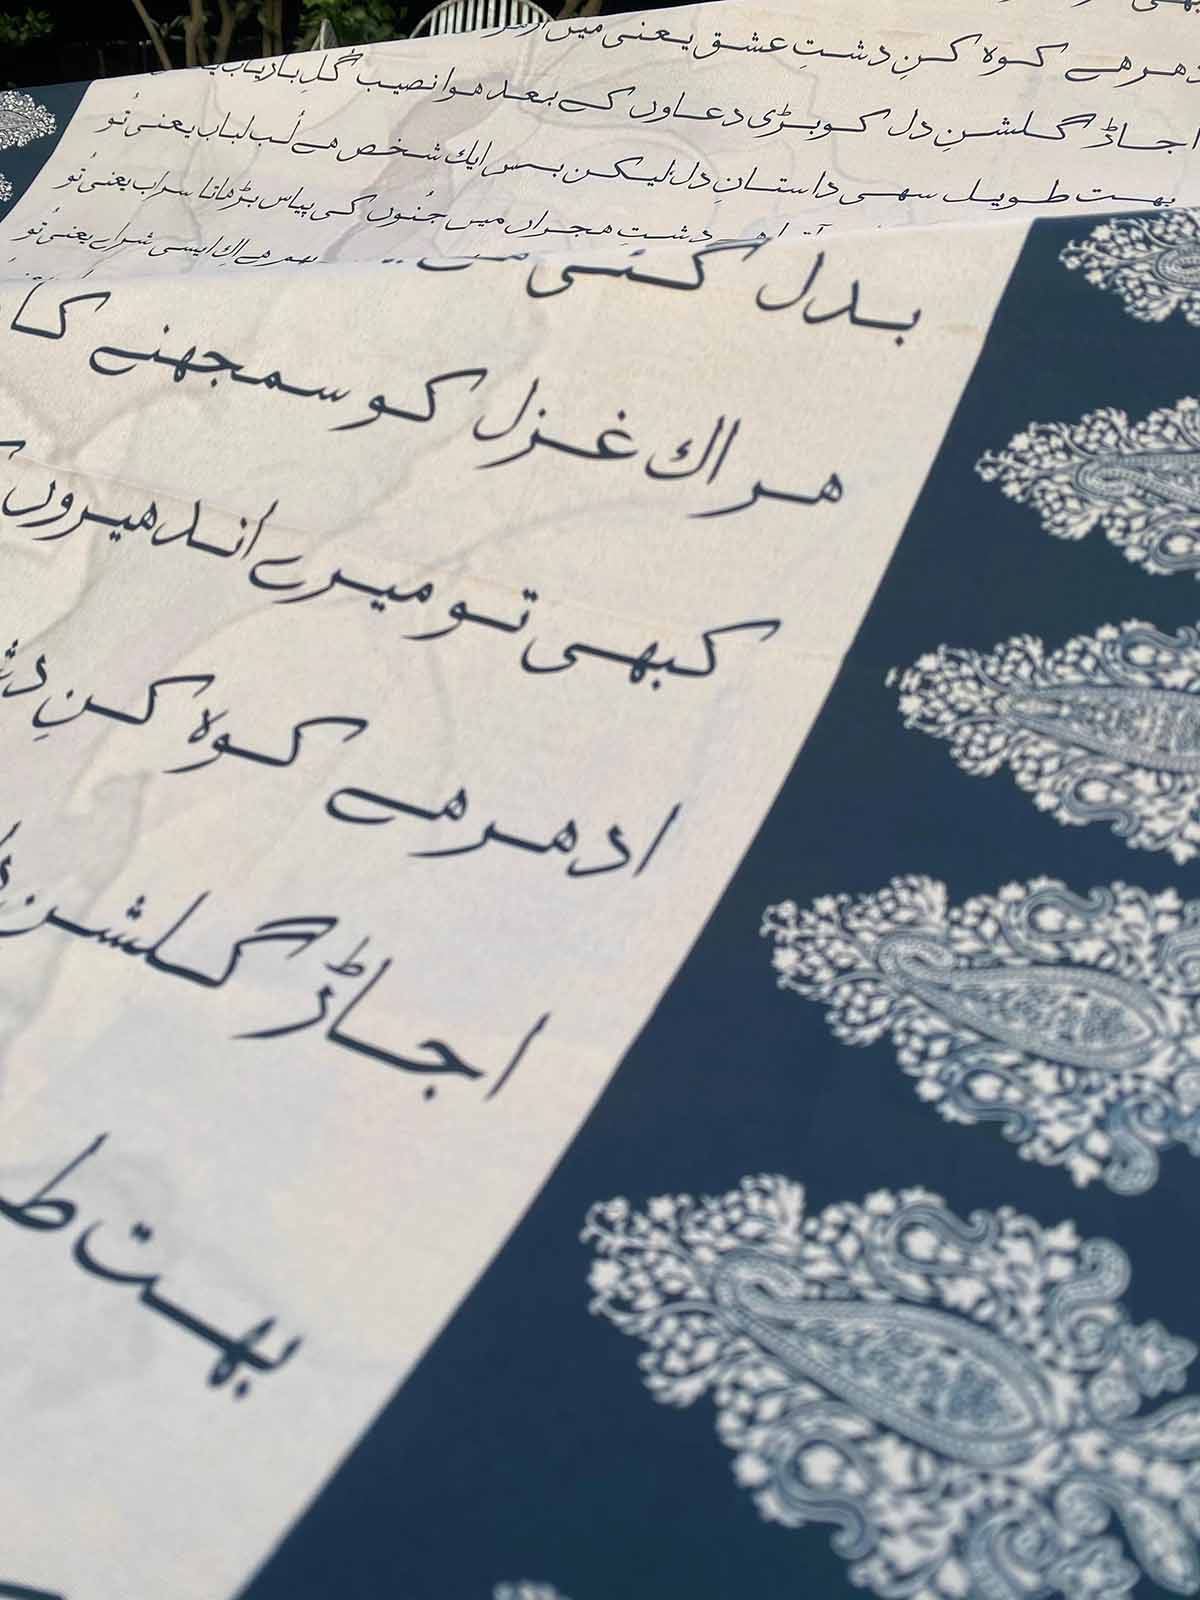 دھر ہے کوہ کنِ دشتِ عشق یعنی میں
اجاڑ گلشنِ دل کو بڑی دعاوں کے بعد ہوا نصیب گلِ باریاب
بہت طویل سہی داستانِ دل لیکن بس ایک شخص ہے لُب لباب یعنی تُو
دشتِ ہجراں میں جُنوں کی پیاس بڑھاتا سراب یعنی تُو
ہے اِک ایسی شراب یعنی تُو
بدل گئی
ہر اک غزل کو سمجھنے کا
کبھی تو میرے اندھیروں
ادھر ہے کوہ کنِ
اجاڑ گلشنِ
بہت ط